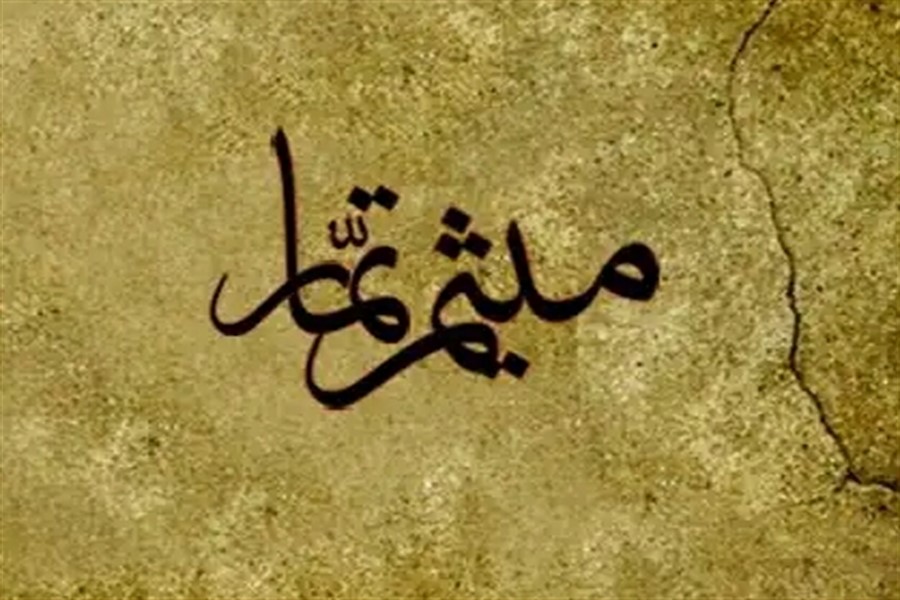 میثم تمّار